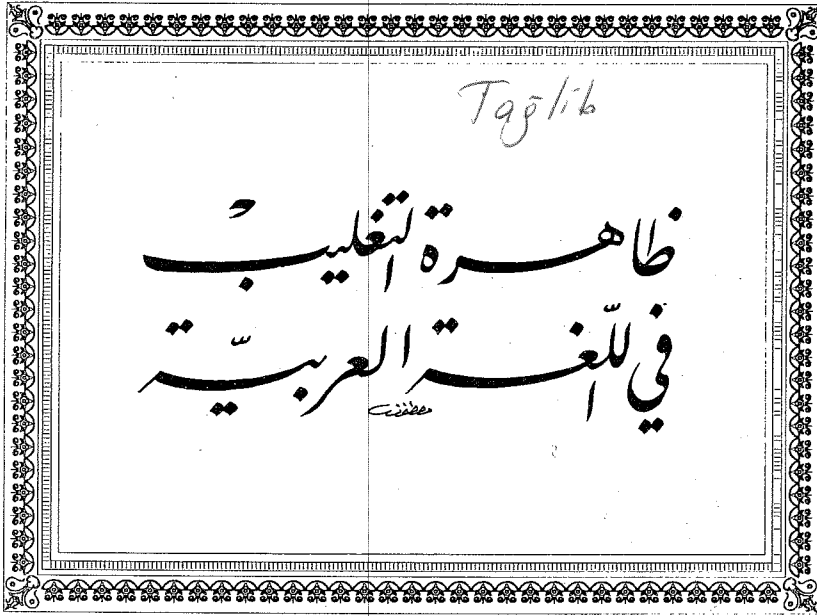 Taġlīb
ظاهرة التغليب
في اللّغة العربيّة